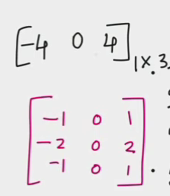 [-4 0 4] 1×3
[-1 0 1
-2 0 2
-1 0 1]